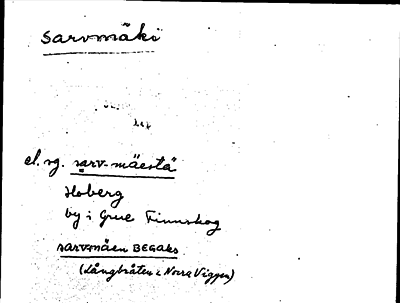 sarvmäki
el. sg. sarv-mäestä
Hoberg
by i Grue Finnskog
sarvmäen BEGAKS
(Långbråten i Norra Viggen)